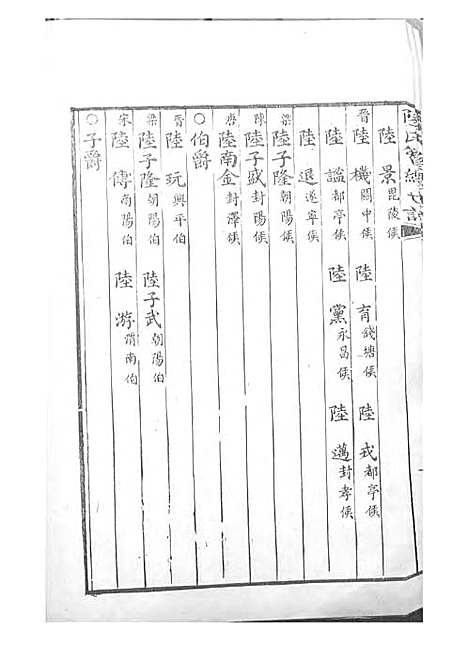 陸氏葑縂世譜
陸景毘陵侯
晉陸機關中侯 陸育錢塘侯 陸戎都亭侯
陸謐都亭侯 陸黨永昌侯 陸邁封孝侯
陸退遂寧侯
梁陸子隆朝陽侯
陳陸子盛封陽侯
唐陸南金封澤侯
○伯爵
晉陸玩興平伯
梁陸子隆朝陽伯 陸子武朝陽伯
宋陸傳南陽伯 陸游渭南伯
○子爵